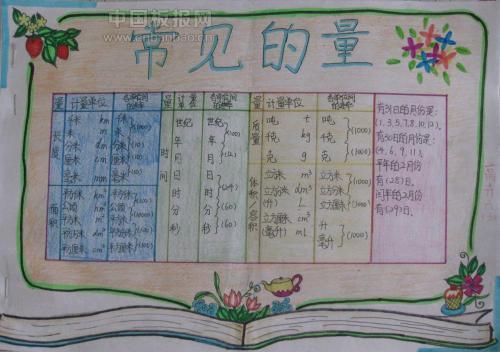 中国板报网
www.cnbanbao.cn
常见的量
量 计量单位 名单位间的进率 量 计量单位 名单位间的进率 量 计量单位 名单位间的进率
长度
千米 km 千米
米 m 米 (1000)
分米 dm 分米
厘米 cm 厘米 (10)
毫米 mm 毫米
面积
平方千米 km² 平方千米
公顷 公顷
平方米 m² 平方米
平方分米 dm² 平方分米
平方厘米 cm² 平方厘米
时间
世纪 世纪 (100)
年 年
月 月 (12)
日 日
时 时 (24)
分 分 (60)
秒 秒 (60)
质量
吨 t 吨
千克 kg 千克 (1000)
克 g 克
体积容积
立方米 m³ 立方米
立方分米 dm³ 立方分米 (1000)
(升) (L)
立方厘米 cm³ 立方厘米
(毫升) mL
升
毫升 (1000)
有31日的月份是:
(1,3,5,7,8,10,12)。
有30日的月份是:
(4,6,9,11)。
平年的2月份
有(28)日。
闰年的2月份
有(29)日。